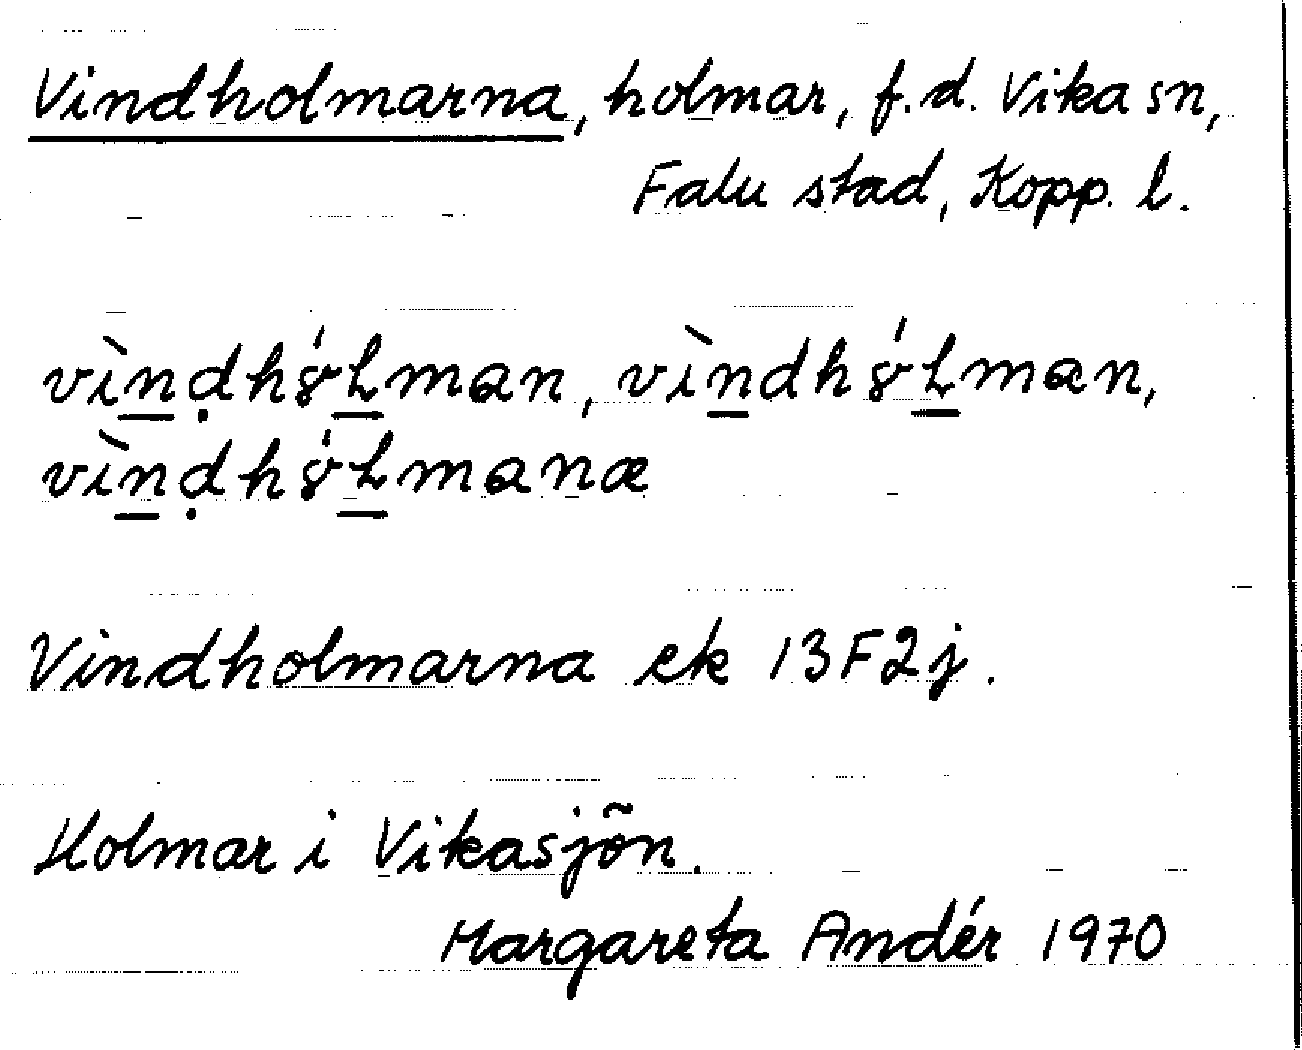 Vindholmarna, holmar, f.d. Vika sn,
Falu stad, Kopp. l.
vìn̲ḍhɤ́L̲man, vìn̲dhɤ́L̲mæn,
vìn̲ḍhɤ́L̲manæ
Vindholmarna ek 13F2j.
Holmar i Vikasjön.
Margareta Andér 1970